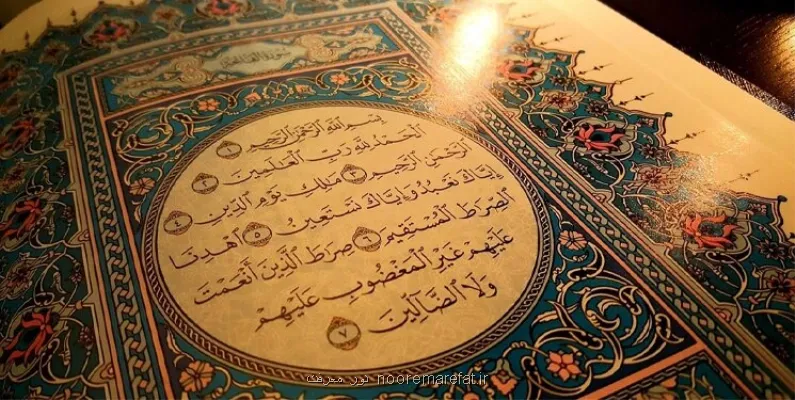 سورة الفاتحة
بِسْمِ ٱللَّهِ ٱلرَّحْمَٰنِ ٱلرَّحِيمِ ١
ٱلْحَمْدُ لِلَّهِ رَبِّ ٱلْعَٰلَمِينَ ٢
ٱلرَّحْمَٰنِ ٱلرَّحِيمِ ٣ مَٰلِكِ يَوْمِ ٱلدِّينِ ٤
إِيَّاكَ نَعْبُدُ وَإِيَّاكَ نَسْتَعِينُ ٥ ٱهْدِنَا
ٱلصِّرَٰطَ ٱلْمُسْتَقِيمَ ٦ صِرَٰطَ ٱلَّذِينَ أَنْعَمْتَ
عَلَيْهِمْ غَيْرِ ٱلْمَغْضُوبِ عَلَيْهِمْ
وَلَا ٱلضَّآلِّينَ ٧
نور معرفت nooremarefat.ir